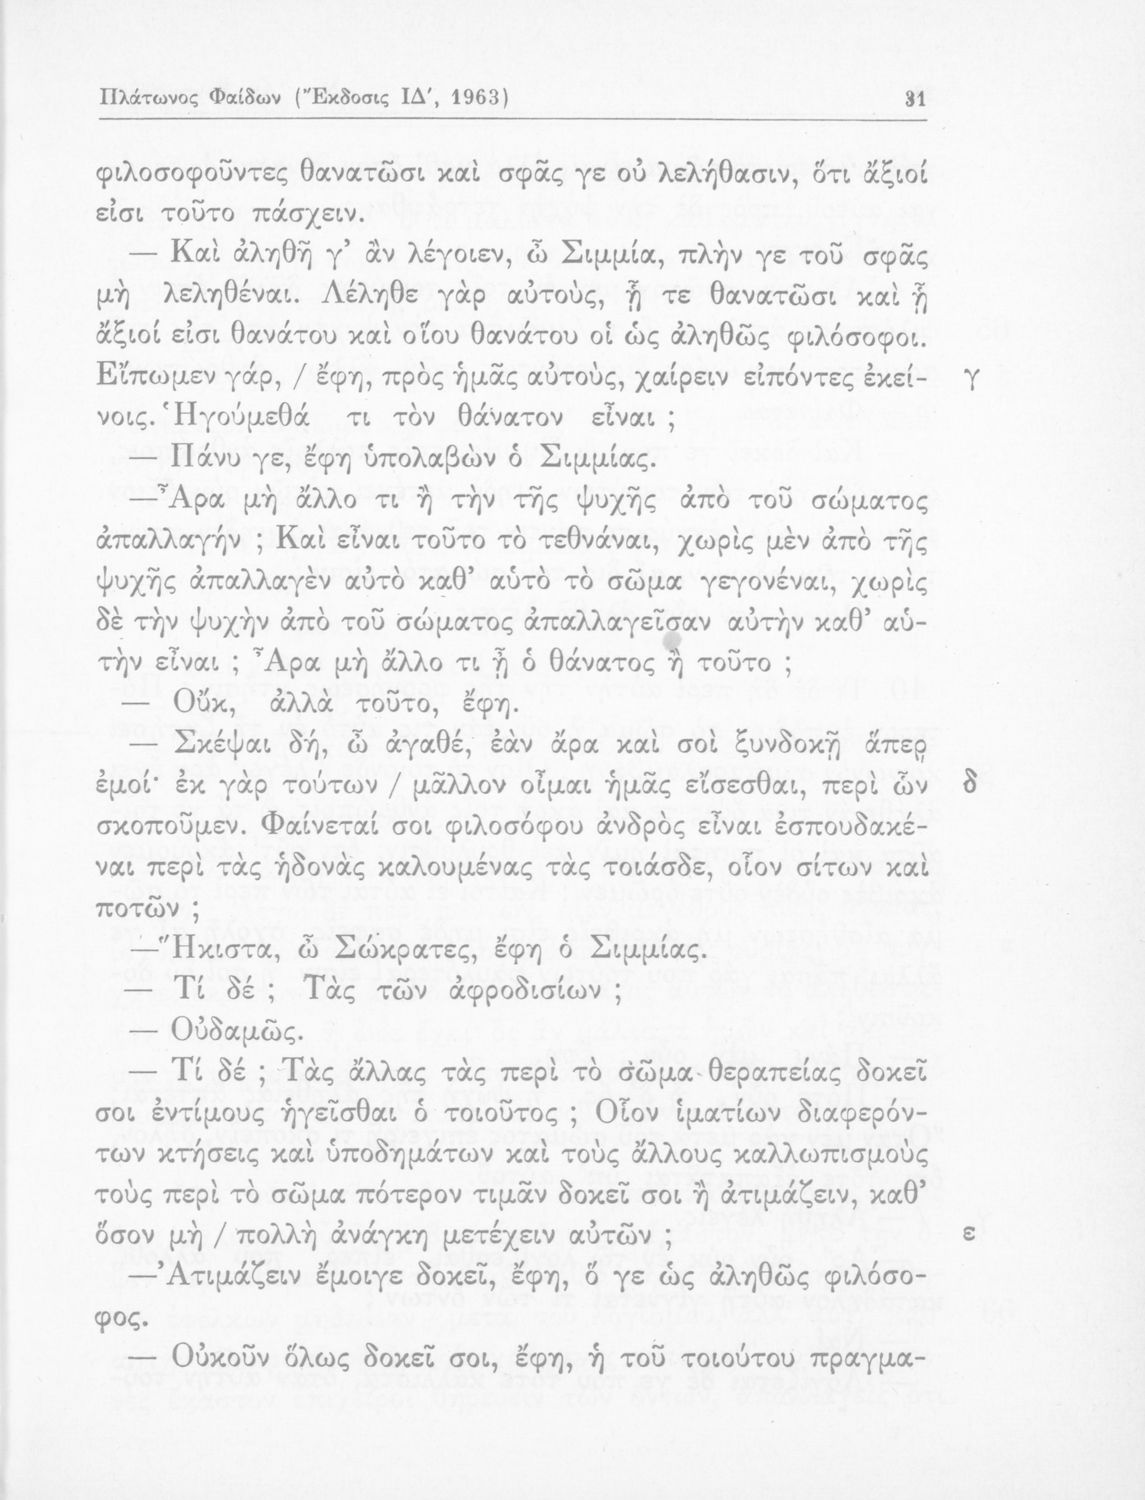 Πλάτωνος Φαίδων (Ἔκδοσις ΙΔ', 1963) 31
φιλοσοφοῦντες θανατῶσι καὶ σφᾶς γε οὐ λελήθασιν, ὅτι ἄξιοί
εἰσι τοῦτο πάσχειν.
— Καὶ ἀληθῆ γ’ ἂν λέγοιεν, ὦ Σιμμία, πλὴν γε τοῦ σφᾶς
μὴ λεληθέναι. Λέληθε γὰρ αὐτοὺς, ᾗ τε θανατῶσι καὶ ᾗ
ἄξιοί εἰσι θανάτου καὶ οἵου θανάτου οἱ ὡς ἀληθῶς φιλόσοφοι.
Εἴπωμεν γάρ, / ἔφη, πρὸς ἡμᾶς αὐτοὺς, χαίρειν εἰπόντες ἐκεί- γ
νοις. Ἡγούμεθά τι τὸν θάνατον εἶναι ;
— Πάνυ γε, ἔφη ὑπολαβὼν ὁ Σιμμίας.
—Ἆρα μὴ ἄλλο τι ἢ τὴν τῆς ψυχῆς ἀπὸ τοῦ σώματος
ἀπαλλαγήν ; Καὶ εἶναι τοῦτο τὸ τεθνάναι, χωρὶς μὲν ἀπὸ τῆς
ψυχῆς ἀπαλλαγὲν αὐτὸ καθ’ αὑτὸ τὸ σῶμα γεγονέναι, χωρὶς
δὲ τὴν ψυχὴν ἀπὸ τοῦ σώματος ἀπαλλαγεῖσαν αὐτὴν καθ’ αὑ-
τὴν εἶναι ; Ἆρα μὴ ἄλλο τι ᾖ ὁ θάνατος ἢ τοῦτο ;
— Οὔκ, ἀλλὰ τοῦτο, ἔφη.
— Σκέψαι δή, ὦ ἀγαθέ, ἐὰν ἄρα καὶ σοὶ ξυνδοκῇ ἅπερ
ἐμοί· ἐκ γὰρ τούτων / μᾶλλον οἶμαι ἡμᾶς εἴσεσθαι, περὶ ὧν δ
σκοποῦμεν. Φαίνεταί σοι φιλοσόφου ἀνδρὸς εἶναι ἐσπουδακέ-
ναι περὶ τὰς ἡδονὰς καλουμένας τὰς τοιάσδε, οἷον σίτων καὶ
ποτῶν ;
—Ἥκιστα, ὦ Σώκρατες, ἔφη ὁ Σιμμίας.
— Τί δέ ; Τὰς τῶν ἀφροδισίων ;
— Οὐδαμῶς.
— Τί δέ ; Τὰς ἄλλας τὰς περὶ τὸ σῶμα θεραπείας δοκεῖ
σοι ἐντίμους ἡγεῖσθαι ὁ τοιοῦτος ; Οἷον ἱματίων διαφερόν-
των κτήσεις καὶ ὑποδημάτων καὶ τοὺς ἄλλους καλλωπισμοὺς
τοὺς περὶ τὸ σῶμα πότερον τιμᾶν δοκεῖ σοι ἢ ἀτιμάζειν, καθ’
ὅσον μὴ / πολλὴ ἀνάγκη μετέχειν αὐτῶν ; ε
—Ἀτιμάζειν ἔμοιγε δοκεῖ, ἔφη, ὅ γε ὡς ἀληθῶς φιλόσο-
φος.
— Οὐκοῦν ὅλως δοκεῖ σοι, ἔφη, ἡ τοῦ τοιούτου πραγμα-